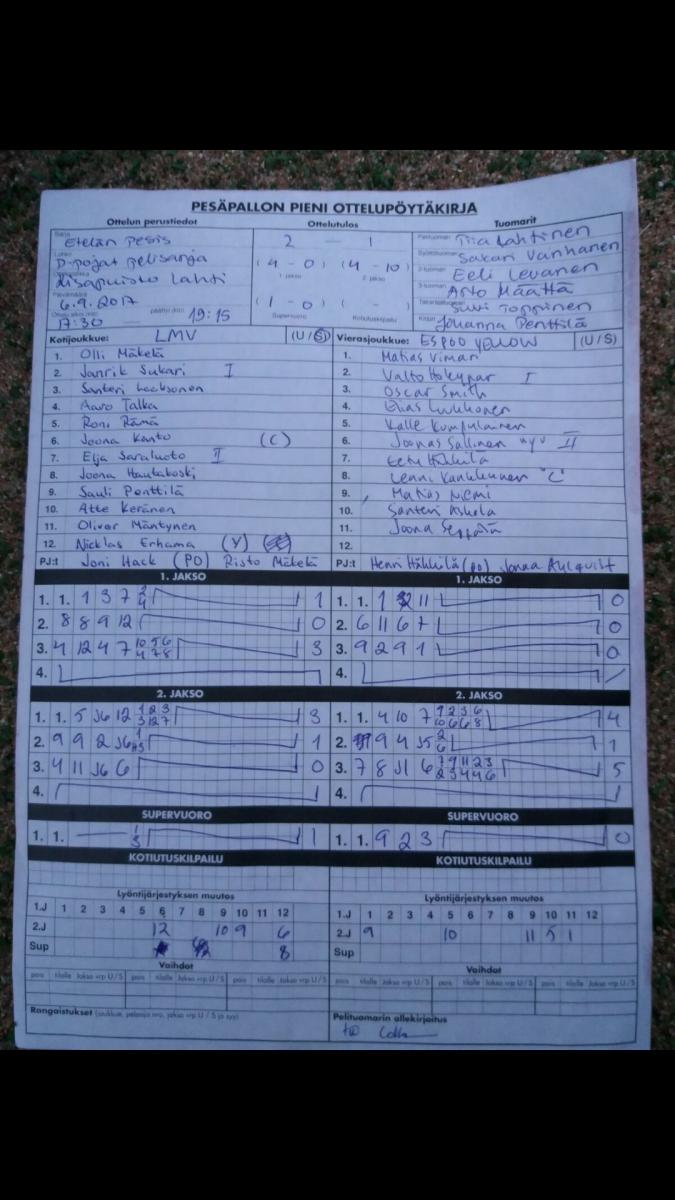 PESÄPALLON PIENI OTTELUPÖYTÄKIRJA
Ottelun perustiedot Ottelutulos Tuomarit
Etelän Pesis 2 — 1 Tiia Lahtinen
D-pojat pelisarja (4 - 0) (4 - 10) Sakari Vanhanen
1. jakso 2. jakso Eeli Levanen
Lahti Arto Määttä
6.9.2017 (1 - 0) ( - ) Suvi Toppinen
17:30 — 19:15 Supervuoro Kotiutuskilpailu Johanna Penttilä
Kotijoukkue: LMV (U/S) Vierasjoukkue: ESPOO YELLOW (U/S)
1. Olli Mäkelä 1. Matias Vimari
2. Janrik Sukari I 2. Valto I
3. Santeri Laaksonen 3. Oscar Smith
4. Aaro Talka 4. Elias Luukkonen
5. Roni Rämä 5. Kalle Kumpulainen
6. Joona Kanto (C) 6. Joonas Sallinen "V" II
7. Elja Saraluoto II 7. Eetu Häkkilä
8. Joona Hautakoski 8. Lenni Kankkunen "C"
9. Sauli Penttilä 9. Matias Niemi
10. Atte Keränen 10. Santeri Askola
11. Oliver Mäntynen 11. Joona Seppälä
12. Nicklas Erhama (V) 12.
PJ:t Joni Hack (PO) Risto Mäkelä PJ:t Henri Häkkilä (PO) Jonna Ahlqvist
1. JAKSO 1. JAKSO
1. 1. 1 3 7 2 4 1 1. 1. 1 11 0
2. 8 8 9 12 0 2. 6 11 6 7 0
3. 4 12 4 7 10 5 6 4 7 8 3 3. 9 2 9 1 0
4. 4.
2. JAKSO 2. JAKSO
1. 1. 5 J6 12 1 2 3 3 12 7 3 1. 1. 4 10 7 9 2 3 6 10 6 6 8 4
2. 9 9 2 J6 1 2. 9 4 J5 2 6 1
3. 4 11 J6 6 0 3. 7 8 J1 6 7 9 11 2 3 2 3 4 4 6 5
4. 4.
SUPERVUORO SUPERVUORO
1. 1. — 1 3 1 1. 1. 9 2 3 0
KOTIUTUSKILPAILU KOTIUTUSKILPAILU
Lyöntijärjestyksen muutos Lyöntijärjestyksen muutos
1.J 1 2 3 4 5 6 7 8 9 10 11 12 1.J 1 2 3 4 5 6 7 8 9 10 11 12
2.J 12 10 9 6 2.J 9 10 11 5 1
Sup 8 Sup
Vaihdot Vaihdot
pois tilalle Jakso vrp U/S pois tilalle Jakso vrp U/S pois tilalle Jakso vrp U/S pois tilalle Jakso vrp U/S
Rangaistukset (joukkue, pelaaja nro, jakso vrp U/S ja syy) Pelituomarin allekirjoitus